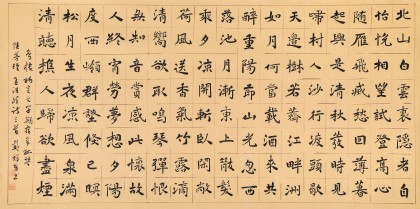 北山白雲裏隱者自
怡悦相望試登高心
隨雁飛滅愁因薄暮
起興是清秋時見歸
村人沙行渡頭歇
天邊樹若薺江畔洲
如月何當載酒來共
醉重陽節山光忽西
落池月漸東上散髮
乘夕涼開軒卧閑敞
荷風送香氣竹露滴
清響欲取鳴琴彈恨
無知音賞感此懷故
人終宵勞夢想夕陽
度西嶺群壑倏已暝
松月生夜涼風泉滿
清聽樵人歸欲盡煙